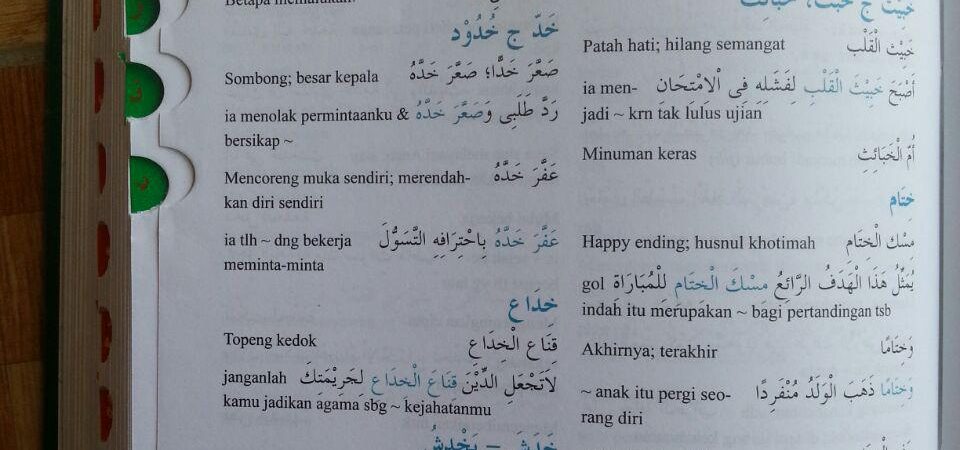 خَبِيْث ج خُبُث، خَبَائِث
Patah hati; hilang semangat خَبِيْث الْقَلْب
ia men- أَصْبَحَ خَبِيْثَ الْقَلْبِ لِفَشَلِهِ فِى الْاِمْتِحَانِ
jadi ~ krn tak lulus ujian
Minuman keras أُمّ الْخَبَائِثِ
خِتَام
Happy ending; husnul khotimah مِسْك الْخِتَامِ
gol يُمَثِّلُ هَذَا الْهَدَفُ الرَّائِعُ مِسْكَ الْخِتَامِ لِلْمُبَارَاةِ
indah itu merupakan ~ bagi pertandingan tsb
Akhirnya; terakhir وَخِتَامًا
~ anak itu pergi seo- وَخِتَامًا ذَهَبَ الْوَلَدُ مُنْفَرِدًا
rang diri
خَدّ ج خُدُوْد
Sombong; besar kepala صَعَّرَ خَدًّا؛ صَعَّرَ خَدَّهُ
ia menolak permintaanku & رَدَّ طَلَبِى وَصَعَّرَ خَدَّهُ
bersikap ~
Mencoreng muka sendiri; merendah- عَفَّرَ خَدَّهُ
kan diri sendiri
ia tlh ~ dng bekerja عَفَّرَ خَدَّهُ بِاحْتِرَافِهِ التَّسَوُّلَ
meminta-minta
خِدَاع
Topeng kedok قِنَاع الْخِدَاعِ
janganlah لَاتَجْعَلِ الدِّيْنَ قِنَاعَ الْخِدَاعِ لِجَرِيْمَتِكَ
kamu jadikan agama sbg ~ kejahatanmu
خَدَشَ – يَخْدِشُ